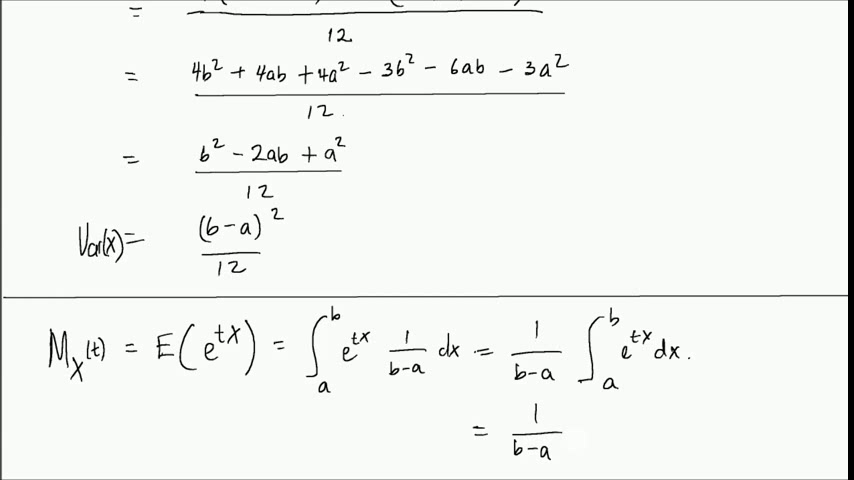 =
12
= 4b² + 4ab + 4a² - 3b² - 6ab - 3a²
12.
= b² - 2ab + a²
12
Var(X) = (b-a)²
12
M_X(t) = E(e^{tX}) = ∫_a^b e^{tx} 1/(b-a) dx = 1/(b-a) ∫_a^b e^{tx} dx.
= 1/(b-a)